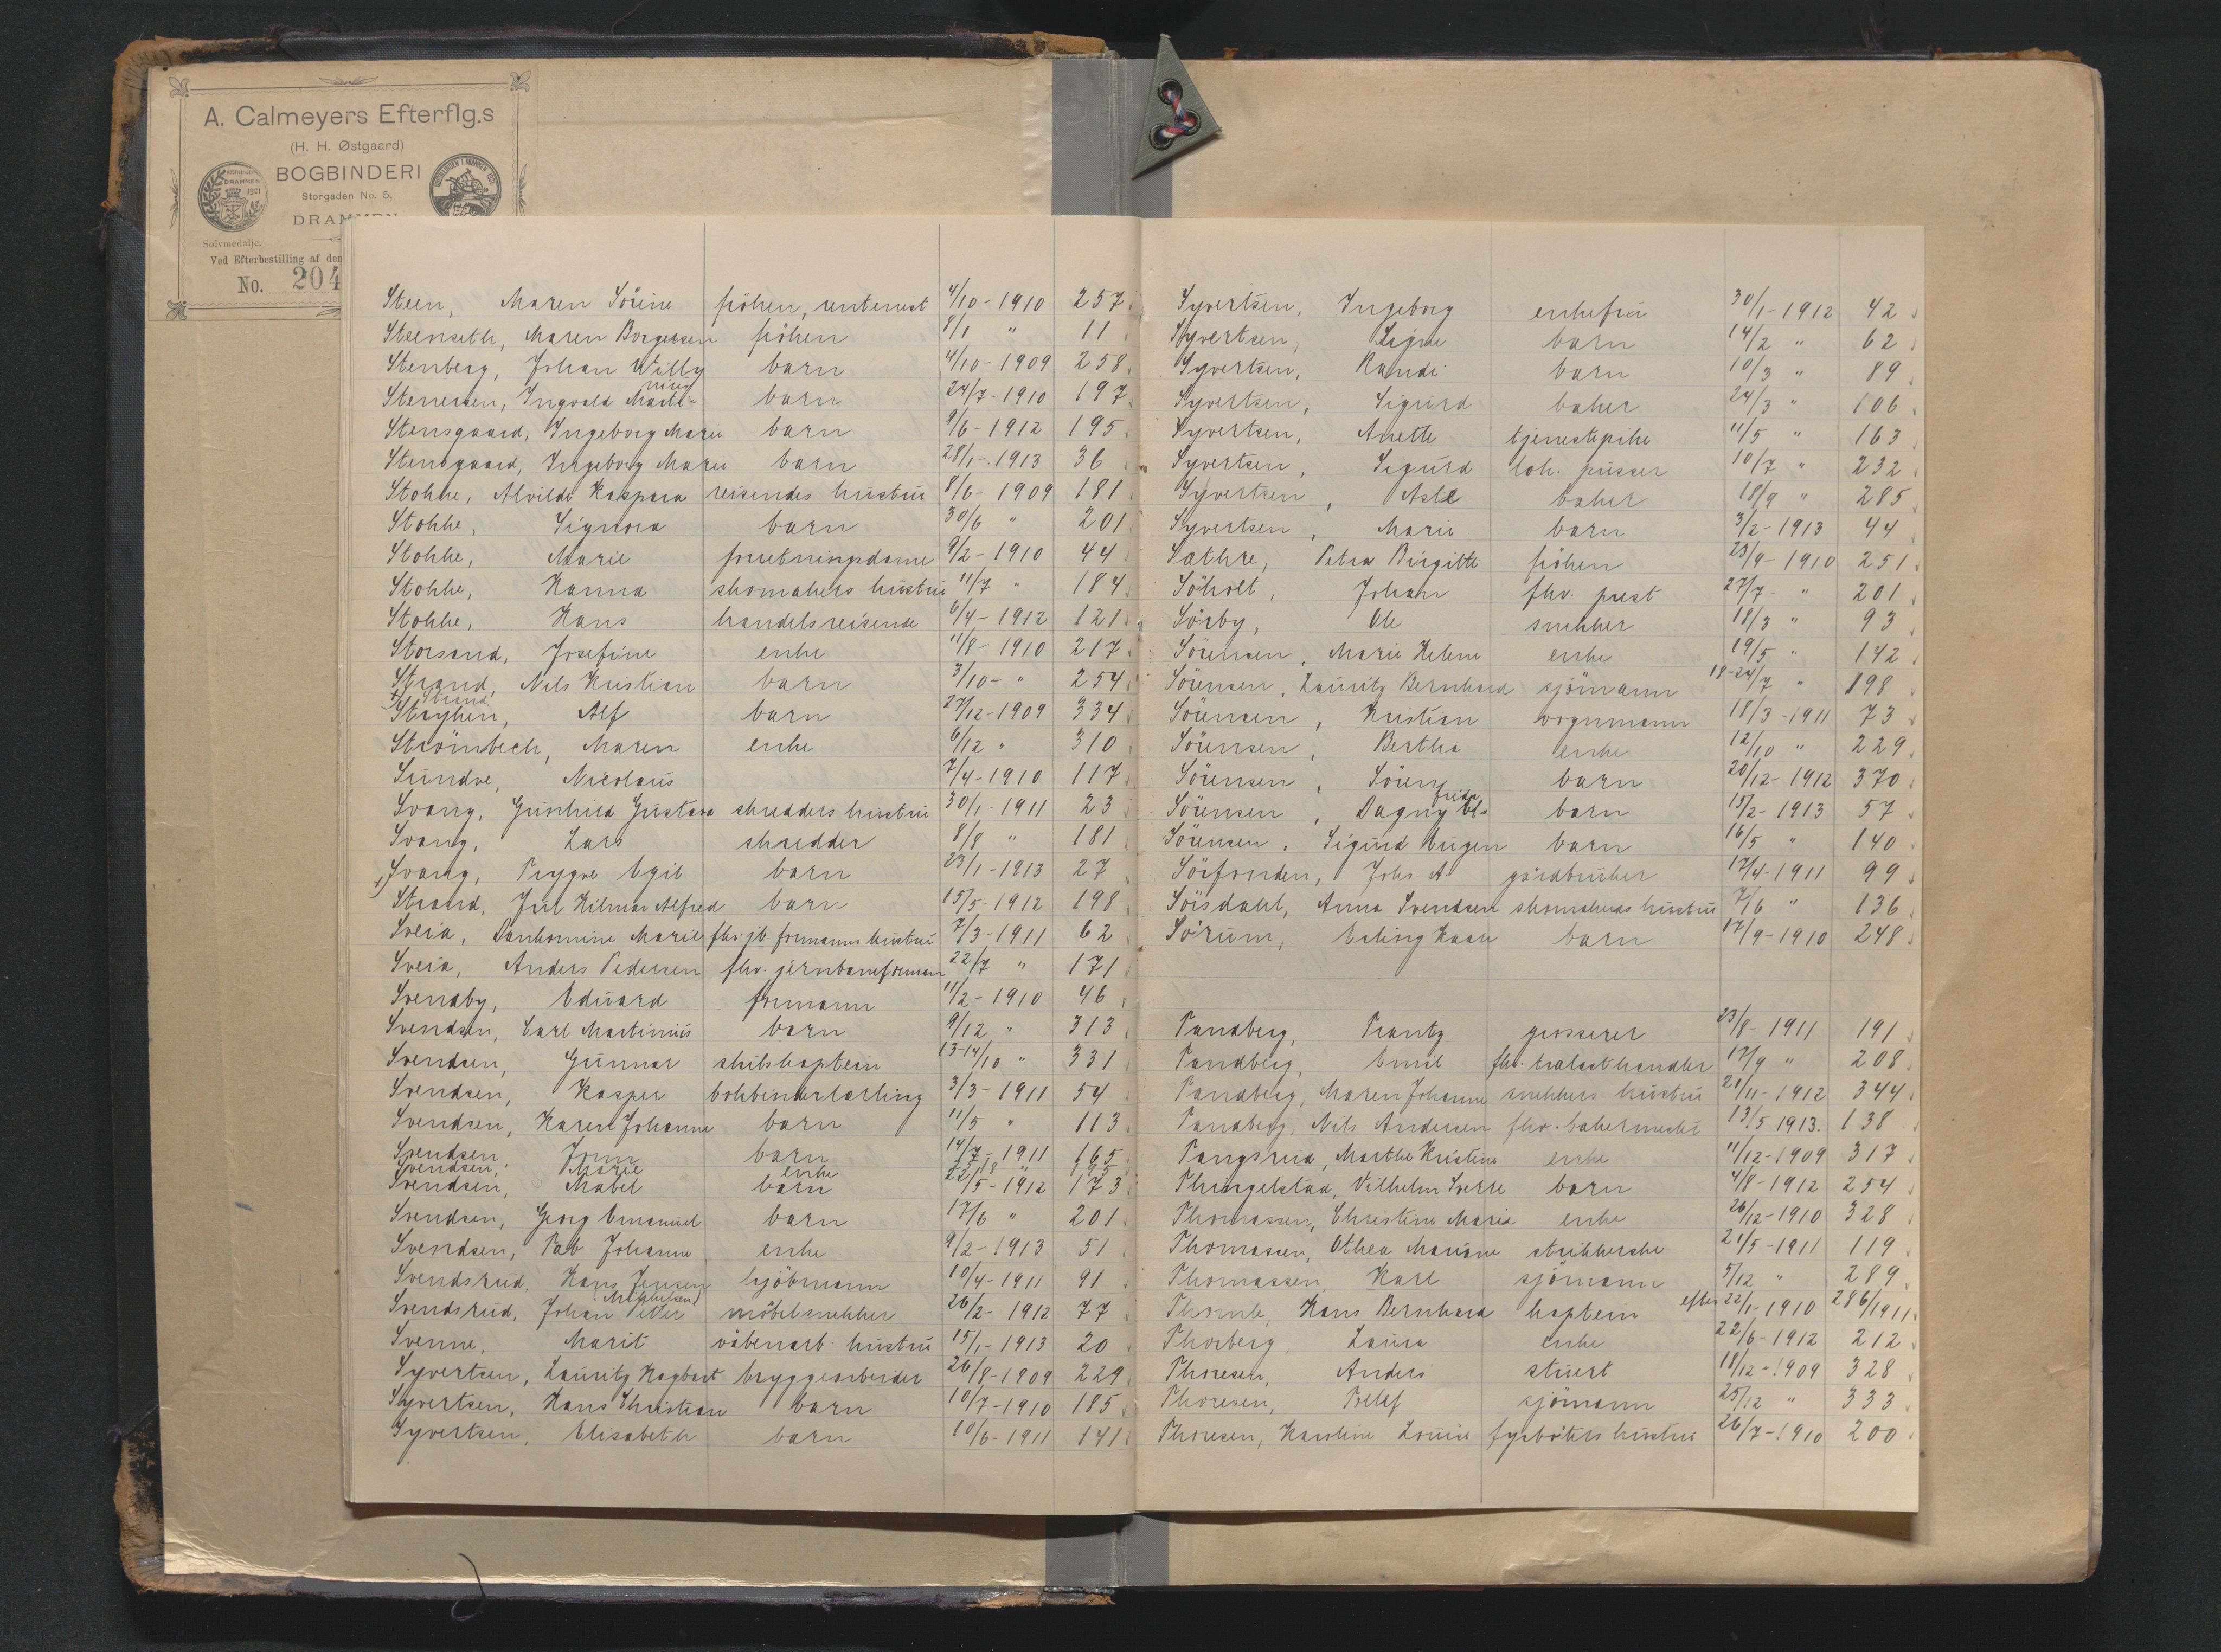 A. Calmeyers Efterflg.s
(H. H. Østgaard)
BOGBINDERI
Storgaden No. 5,
DRAMMEN
Sølvmedalje.
Ved Efterbestilling af der
No. 204
Steen, Maren Sörine fröken, rentenist 4/10-1910 257
Steenseth, Maren Borgersen fröken 8/1 " 11
Stenberg, Johan Willy barn 4/10-1909 258
Stenersen, Ingvald Marti- nius barn 24/7-1910 197
Stensgaard, Ingeborg Marie barn 9/6-1912 195
Stensgaard, Ingeborg Marie barn 28/1-1913 36
Stokke, Alvilde Kaspara reisendes hustru 8/6-1909 181
Stokke, Signora barn 30/6 " 201
Stokke, Marie forretningsdame 9/2-1910 44
Stokke, Hanna skomakers hustru 11/7 " 184
Stokke, Hans handelsreisende 6/4-1912 121
Storsand, Josefine enke 11/8-1910 217
Strand, Nils Kristian barn 3/10- " 254
+) Strand
Stryken, Alf barn 27/12-1909 334
Strömbech, Maren enke 6/12 " 310
Sundve, Nicolaus 7/4-1910 117
Svang, Gunhild Gustava skredders hustru 30/1-1911 23
Svang, Lars skredder 8/8 " 181
Svang, Trygve Egil barn 23/1-1913 27
+) Strand, Jul Hilmar Alfred barn 15/5-1912 198
Sveia, Dankomine Marie fhv. jb. formanns hustru 7/3-1911 62
Sveia, Anders Pedersen fhv. jernbaneformann 22/7 " 171
Svendby, Edvard formann 11/2-1910 46
Svendsen, Carl Martinius barn 9/12 " 313
Svendsen, Gunnar skibskaptein 13-14/10 " 331
Svendsen, Kasper bokbinderlærling 3/3-1911 54
Svendsen, Karen Johanne barn 11/5 " 113
Svendsen, Jonn barn 14/7-1911 165
Svendsen, Marie enke " 195
Svendsen, Mabel barn 22/5-1912 173
Svendsen, Georg Emanuel barn 17/6 " 201
Svendsen, Tab. Johanne enke 9/2-1913 51
Svendsrud, Hans Jensen kjöbmann 10/4-1911 91
Svendsrud, Johan Peter Mikkelsen möbelsnekker 26/2-1912 77
Svenne, Marit våbenarb. hustru 15/1-1913 20
Syvertsen, Lauritz Hagbart bryggearbeider 26/8-1909 229
Syvertsen, Hans Christian barn 10/7-1910 185
Syvertsen, Elisabeth barn 10/6-1911 141
Syvertsen, Ingeborg enkefru 30/1-1912 42
Syvertsen, Signe barn 14/2 " 62
Syvertsen, Randi barn 10/3 " 89
Syvertsen, Sigurd baker 24/3 " 106
Syvertsen, Anette tjenestepike 11/5 " 163
Syvertsen, Sigurd lok. pusser 10/7 " 232
Syvertsen, Asle baker 18/9 " 285
Syvertsen, Marie barn 3/2-1913 44
Sæthre, Petra Birgitte fröken 23/9-1910 251
Söholt, Johan fhv. prest 27/7 " 201
Sörby, Ole snekker 18/3 " 93
Sörensen, Marie Helene enke 19/5 " 142
Sörensen, Lauritz Bernhard sjömann 18-24/7 " 198
Sörensen, Kristian vognmann 18/3-1911 73
Sörensen, Bertha enke 12/10 " 229
Sörensen, Sören barn 20/12-1912 370
Sörensen, Dagny El- frida barn 15/2-1913 57
Sörensen, Sigurd Eugen barn 16/5 " 140
Sörfonden, Johs. A. gårdbruker 17/4-1911 99
Sörsdahl, Anna Svendsen skomakers hustru 7/6 " 136
Sörum, Erling Kaare barn 17/9-1910 248
Tandberg, Frantz grosserer 23/8-1911 191
Tandberg, Emil fhv. trælasthandler 17/9 " 208
Tandberg, Maren Johanne snekkers hustru 21/11-1912 344
Tandberg, Nils Andersen fhv. bakermester 13/5 1913. 138
Tangsrud, Marthe Kristine enke 11/12-1909 317
Thingelstad, Vilhelm Sverre barn 4/8-1912 254
Thomassen, Christine Marie enke 26/12-1910 328
Thomassen, Othea Mariane strikkerske 21/5-1911 119
Thomassen, Karl sjömann 5/12 " 289
Thomle, Hans Bernhard kaptein efter 22/1-1910 286/1911
Thorberg, Laura enke 22/6-1912 212
Thoresen, Anders stuert 18/12-1909 328
Thoresen, Detlef sjömann 25/12 " 333
Thoresen, Karoline Louise fyrböters hustru 26/7-1910 200